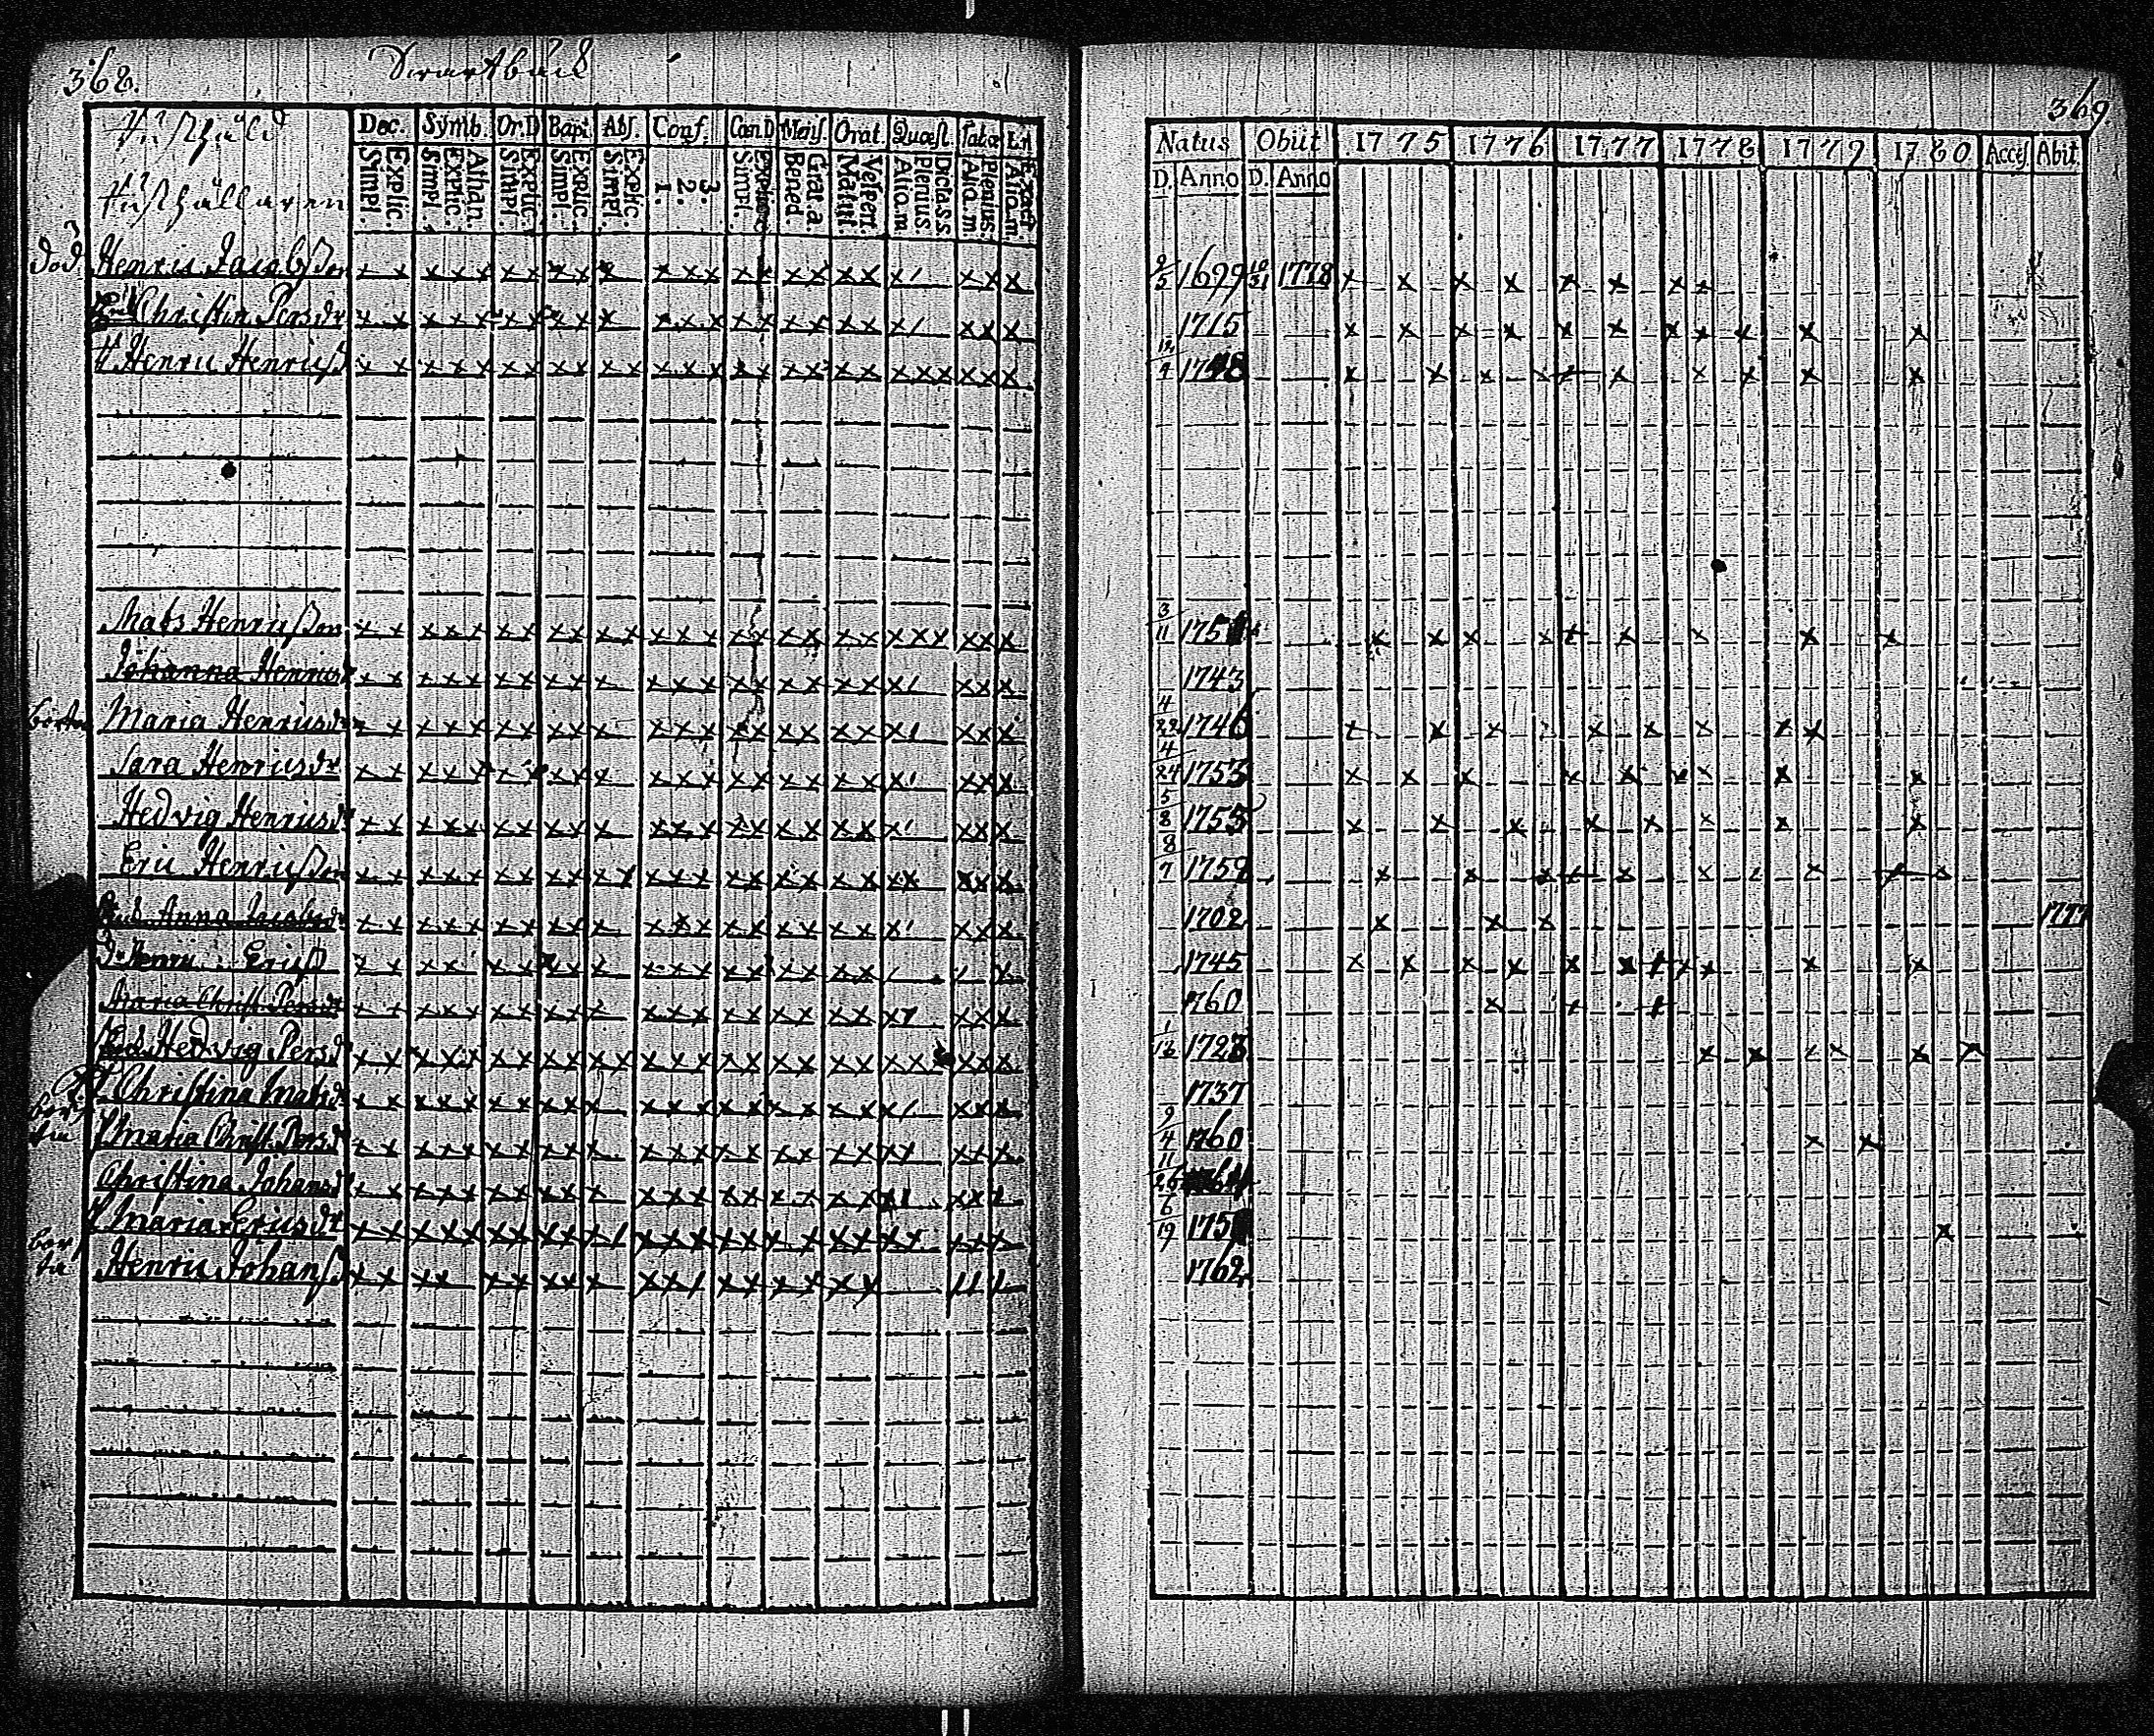 368.
Swartbäck
Dec. Symb. Or.D Bapt. Abs. Conf. Can.D Mens. Orat. Quæst. Tabæ
Simpl. Explic. Simpl. Explic. Athan. Simpl. Explic. Simpl. Explic. Simpl. Explic. 1. 2. 3. Simpl. Explic. Bened. Grat. a. Matut. Vespert. Aliq. m. Plenius Dictass. Aliq. m. Plenius. Aliq. m. Exact
död Henric Jacobsson
Christin Persdr
Henric Henricss
Mats Henricsson
Johanna Henricsdr
borta Maria Henricsdr
Sara Henricsdr
Hedvig Henricsdr
Eric Henricsson
Anna Jacobsdr
Henric Ericss
Maria Christ. Persdr
Hedvig Persdr
Christina Matsdr
Maria Christ. Persdr
Christina Johansdr
Maria Ericsdr
Henric Johanss
369
Natus Obiit 1775 1776 1777 1778 1779 1780 Access Abit
D. Anno D. Anno
9/5 1699 10/31 1778
1715
12/4
3/11
1743
4/22 1746
4/24 1753
5/8 1755
8/7 1759
1702 1777
1745
1760
1/12
1737
9/4 1760
11/26
6/19
1762